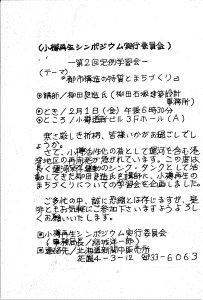 (小樽再生シンポジウム実行委員会)
―第2回定例学習会―
(テーマ)
『都市構造の特質とまちづくり』
◎講師/柳田良造氏(柳田石塚建築設計
事務所)
◎とき/2月1日(金)午後6時30分
◎ところ/小樽 3Fホール(A)
寒さ厳しき折柄、皆様いかがお過ごしでし
ょうか。
さて、小樽活性化の基として運河を含む港
湾地区の再開発が 。この度は、
長く運河保存運動のシンク・タンクとして活
動してきた柳田良造氏を講師に、小樽再生の
まちづくりについての学習会を企画しました。
ご多忙の中、誠に恐縮とは存じますが、是
非ともお気軽にご参加下さいますようよろしく
お願いいたします。
◎小樽再生シンポジウム実行委員会
(事務局長/結城洋一郎)
◎連絡先/北海道新聞中販売所
花園4-3-12 ☎33-6063